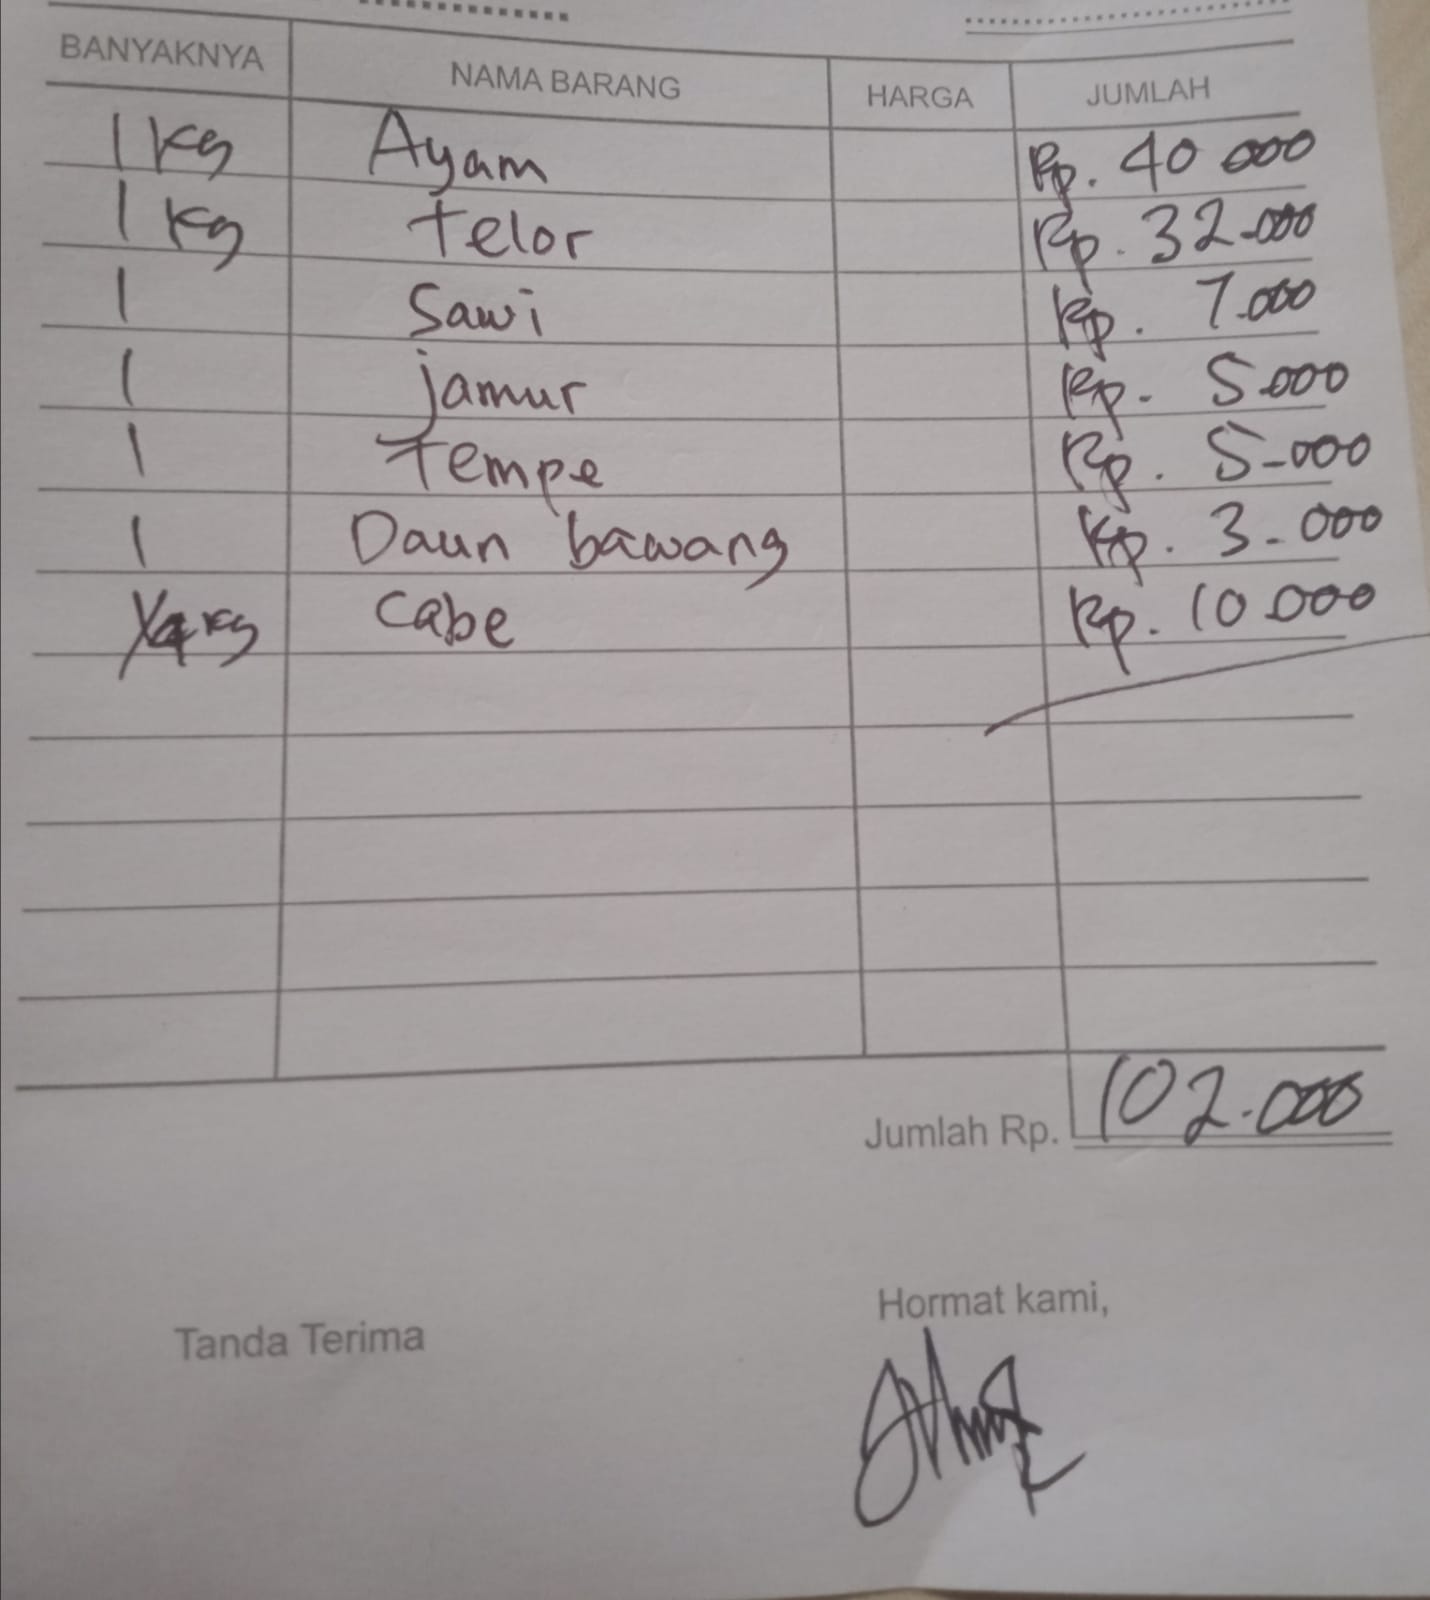 BANYAKNYA NAMA BARANG HARGA JUMLAH
1 kg Ayam Rp. 40 000
1 kg telor Rp. 32.000
1 Sawi Rp. 7.000
1 jamur Rp. 5.000
1 Tempe Rp. 5-000
1 Daun bawang Rp. 3-000
1/4 kg Cabe Rp. 10.000
Jumlah Rp. 102.000
Tanda Terima Hormat kami,